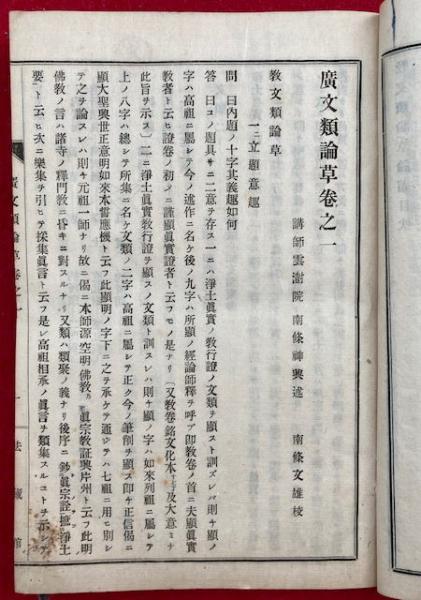 廣文類論草卷之一
講師雲澍院 南條神興述 南條文雄校
教文類論草
一ニ立題意趣
問 曰内題ノ十字其義趣如何
答 曰コノ題具サニ二意ヲ存ス一ニハ淨土眞實ノ教行證ノ文類ヲ顯スト訓ズレバ則チ顯ノ
字ハ高祖ニ屬シテ今ノ述作ニ名ケ後ノ九字ハ所顯ノ經論師釋ヲ呼ブ即教卷ノ首ニ夫顯眞實
教者ト云ヒ證卷ノ初メニ謹顯眞實證者ト云フモノ是ナリ(又教卷銘文化本及大意ミナ
此旨ヲ示ス)二ニ淨土眞實教行證ヲ顯スノ文類ト訓スレハ則チ顯ノ字ハ如來列祖ニ屬シテ
上ノ八字ハ總シテ所集ニ名ケ文類ノ二字ハ高祖ニ屬シテ正ク今ノ筆削ヲ顯ス即チ正信偈ニ
顯大聖興世正意明如來本誓應機ト云フ此顯明ノ字下ニ之ヲ承ケテ通ジテハ七祖ニ用ヒ別シ
テ之ヲ論スレハ則チ元祖一師ナリ故ニ偈ニ本師源空明佛教乃眞宗教証興片州ト云フ此明
佛教ノ言ハ諸寺ノ釋門教ニ昏キニ對スルナリ又類ハ類聚ノ義ナリ後序ニ鈔眞宗詮摭淨土
要ト云ヒ次ニ樂集ヲ引ヒテ採集眞言ト云フ是レ高祖相承ノ眞言ヲ類集スルコトヲ示シテ
廣文類論草卷之一
一
法藏館